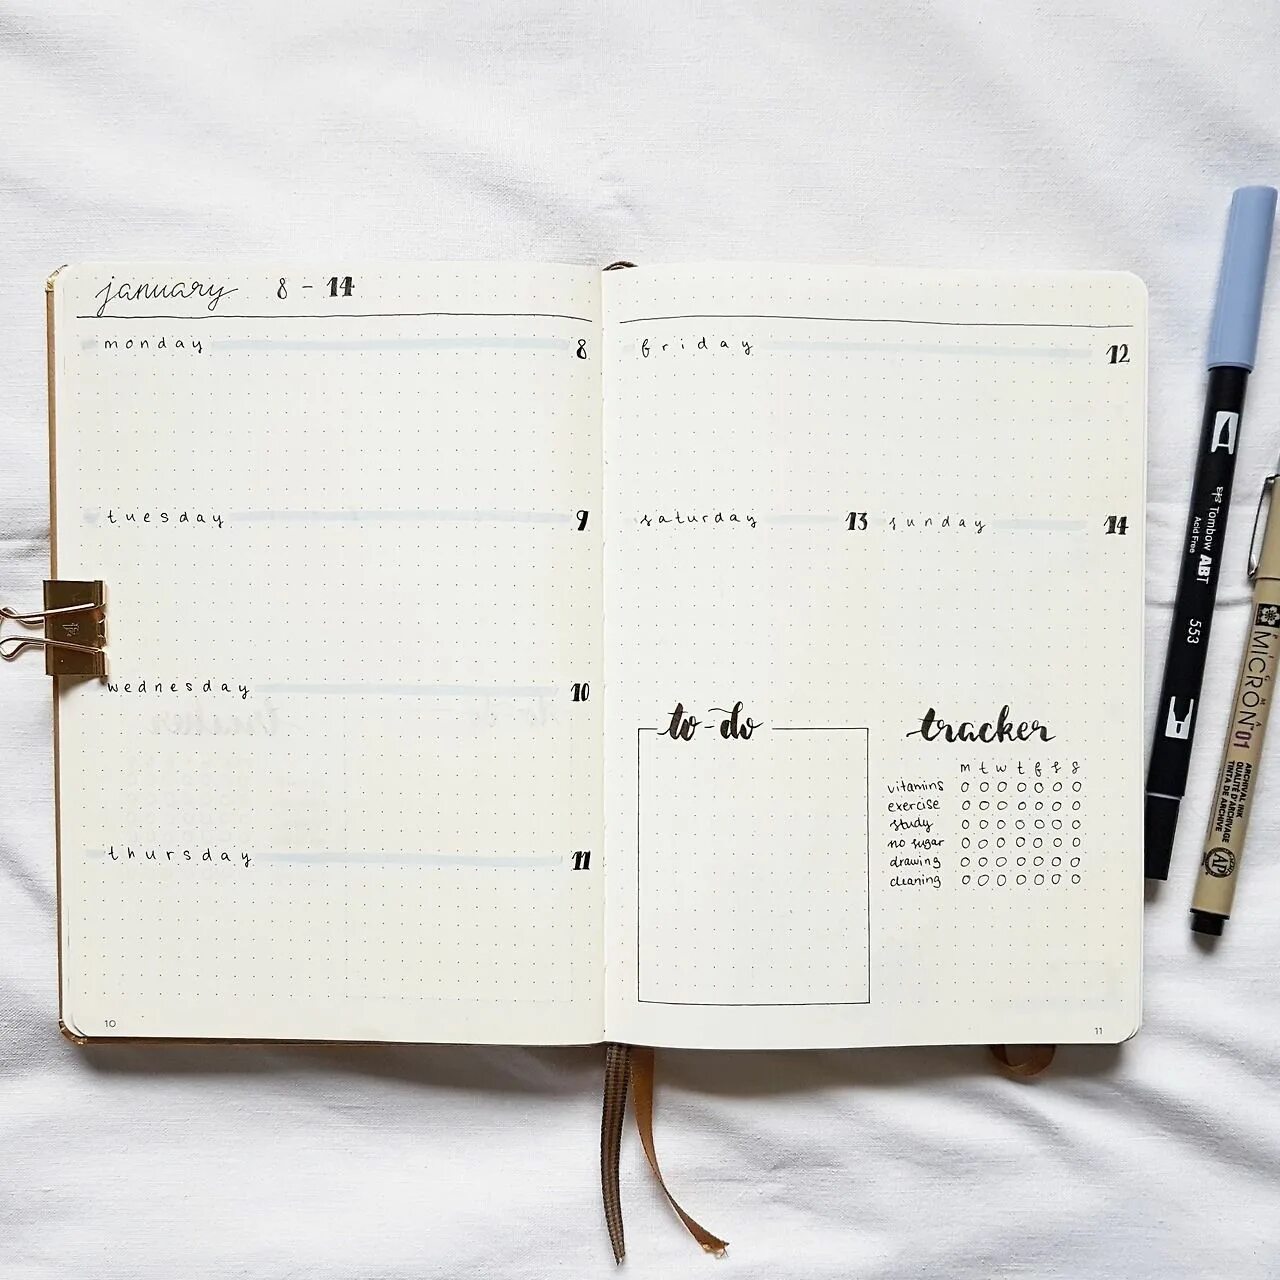 january 8 - 14
monday 8
tuesday 9
wednesday 10
thursday 11
10
friday 12
saturday 13 sunday 14
to-do
tracker
m t w t f s s
vitamins
exercise
study
no sugar
drawing
cleaning
11
Tombow ABT
Acid Free
553
MICRON 01
ARCHIVAL INK
QUALITÉ D'ARCHIVAGE
TINTA DE ARCHIVE
AP